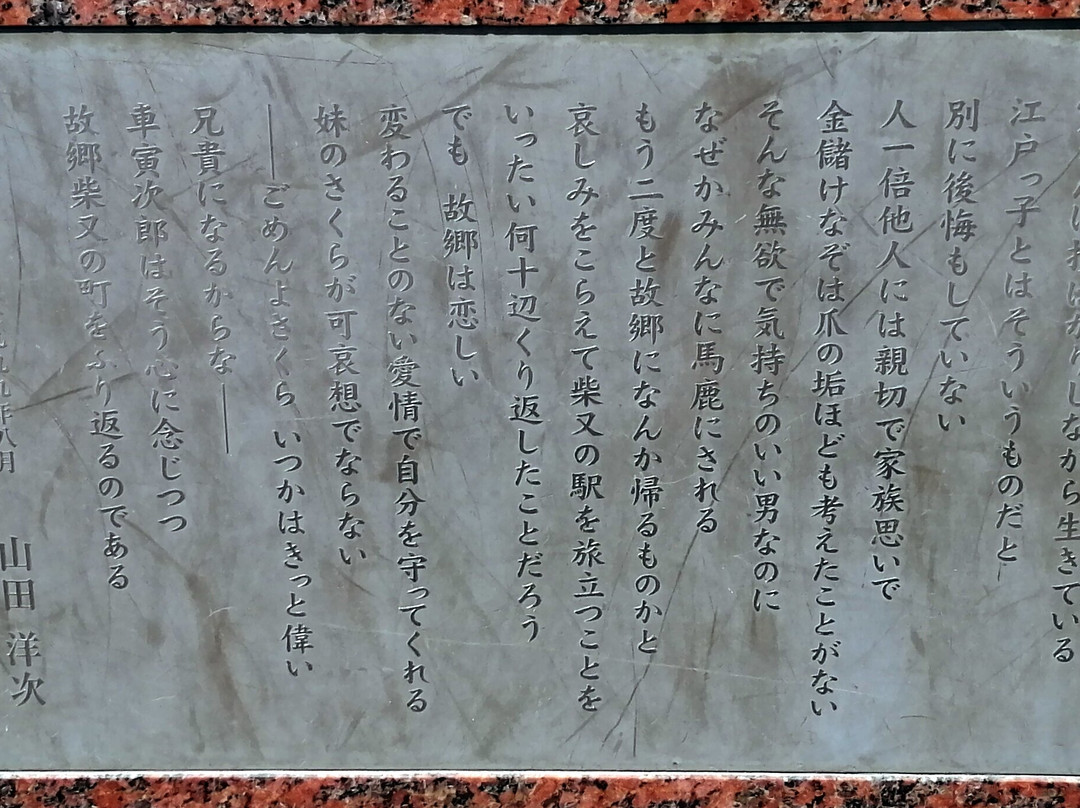 ながら生きている
江戸っ子とはそういうものだと
別に後悔もしていない
人一倍他人には親切で家族思いで
金儲けなぞは爪の垢ほども考えたことがない
そんな無欲で気持ちのいい男なのに
なぜかみんなに馬鹿にされる
もう二度と故郷になんか帰るものかと
哀しみをこらえて柴又の駅を旅立つことを
いったい何十辺くり返したことだろう
でも 故郷は恋しい
変わることのない愛情で自分を守ってくれる
妹のさくらが可哀想でならない
――ごめんよさくら いつかはきっと偉い
兄貴になるからな――
車寅次郎はそう心に念じつつ
故郷柴又の町をふり返るのである
九九年八月
山田 洋次